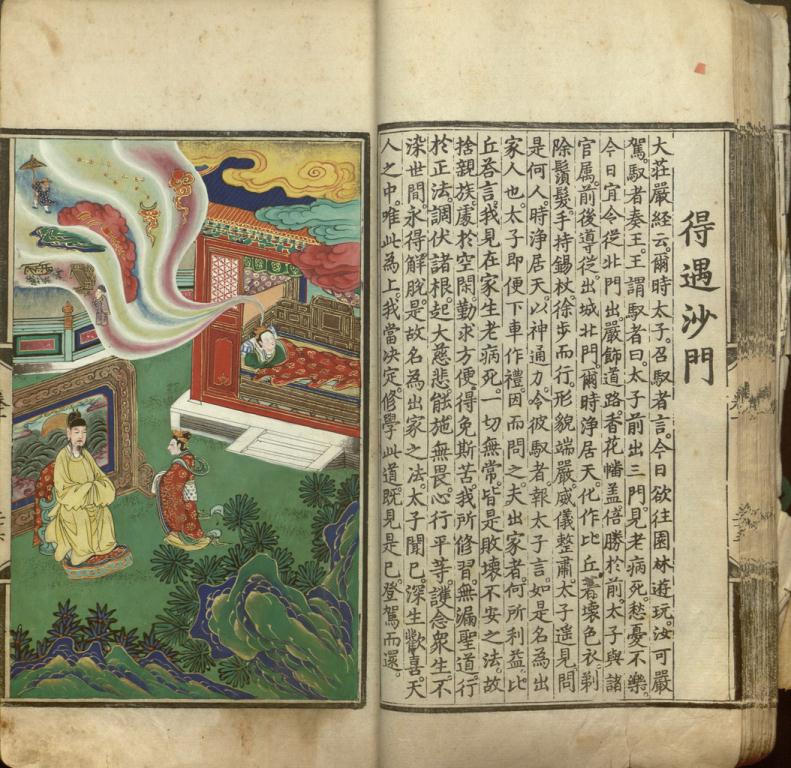 得遇沙門
大莊嚴經云。爾時太子。召馭者言。今日欲往園林遊玩。汝可嚴
駕。馭者奏王。王謂馭者曰。太子前出三門。見老病死。愁憂不樂。
今日宜令從北門出。嚴飾道路。香花幡蓋。倍勝於前。太子與諸
官屬。前後導從。出城北門。爾時淨居天。化作比丘。著壞色衣。剃
除鬚髮。手持錫杖。徐步而行。形貌端嚴。威儀整肅。太子遙見。問
是何人。時淨居天。以神通力。令彼馭者報太子言。如是名為出
家人也。太子即便下車作禮。因而問之。夫出家者。何所利益。比
丘答言。我見在家生老病死。一切無常。皆是敗壞不安之法。故
捨親族。處於空閑。勤求方便。得免斯苦。我所修習。無漏聖道。行
於正法。調伏諸根。起大慈悲。能施無畏。心行平等。護念衆生。不
染世間。永得解脫。是故名為出家之法。太子聞已。深生歡喜。天
人之中。唯此為上。我當決定。修學此道。既見是已。登駕而還。